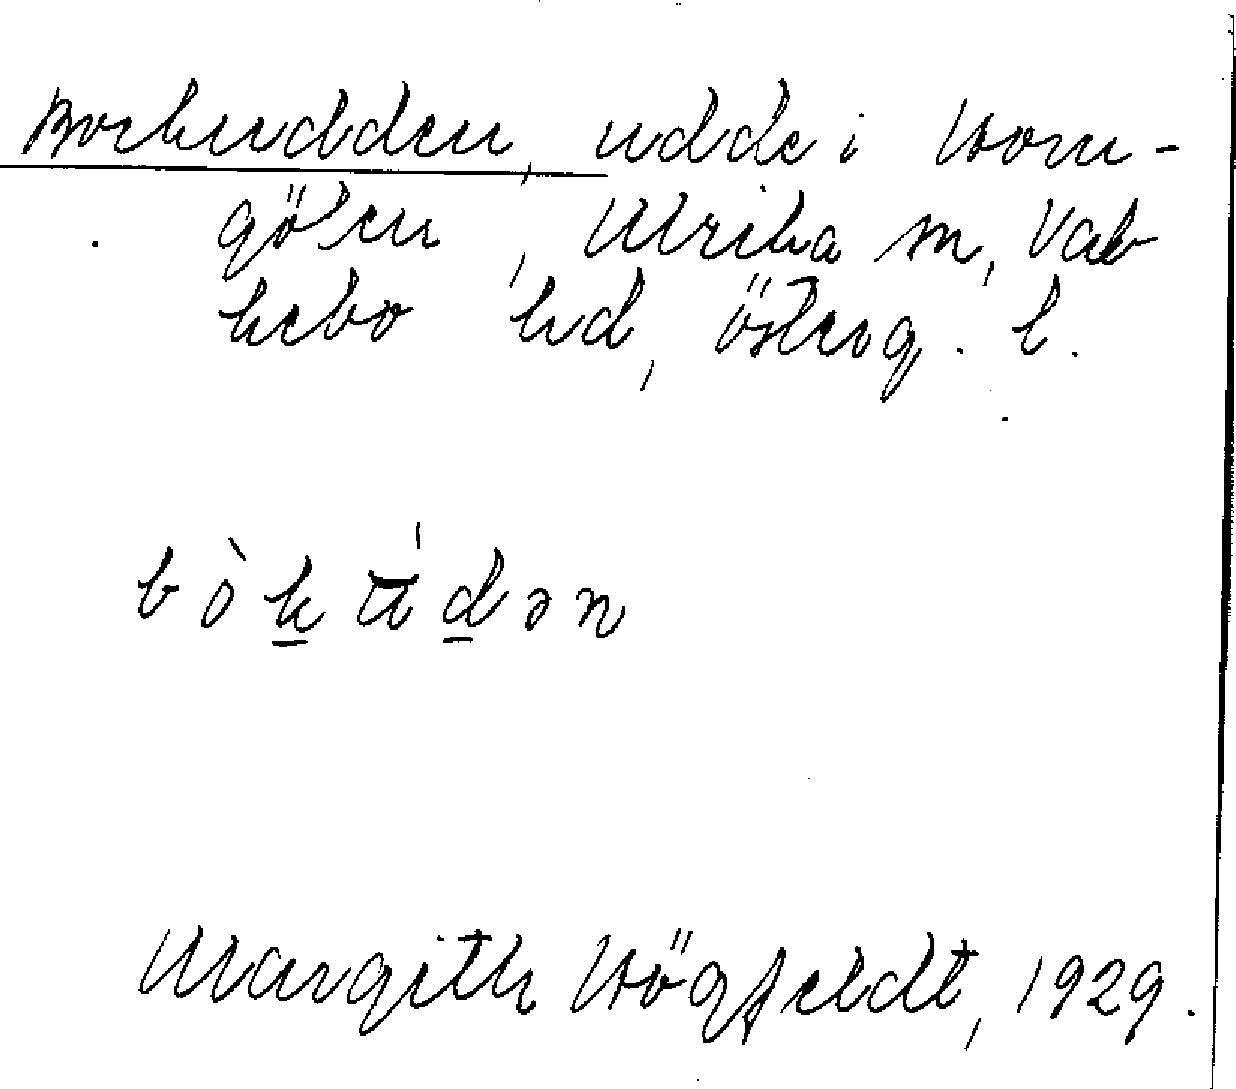 Bockudden, udde i Horn-
gölen, Ulrika sn, Val-
kebo hd, Österg. l.
b ò k̲ ū́ d̲ ə n
Margith Högfeldt, 1929.